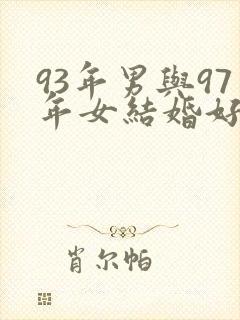 93年男與97
年女結婚好
肖尔帕